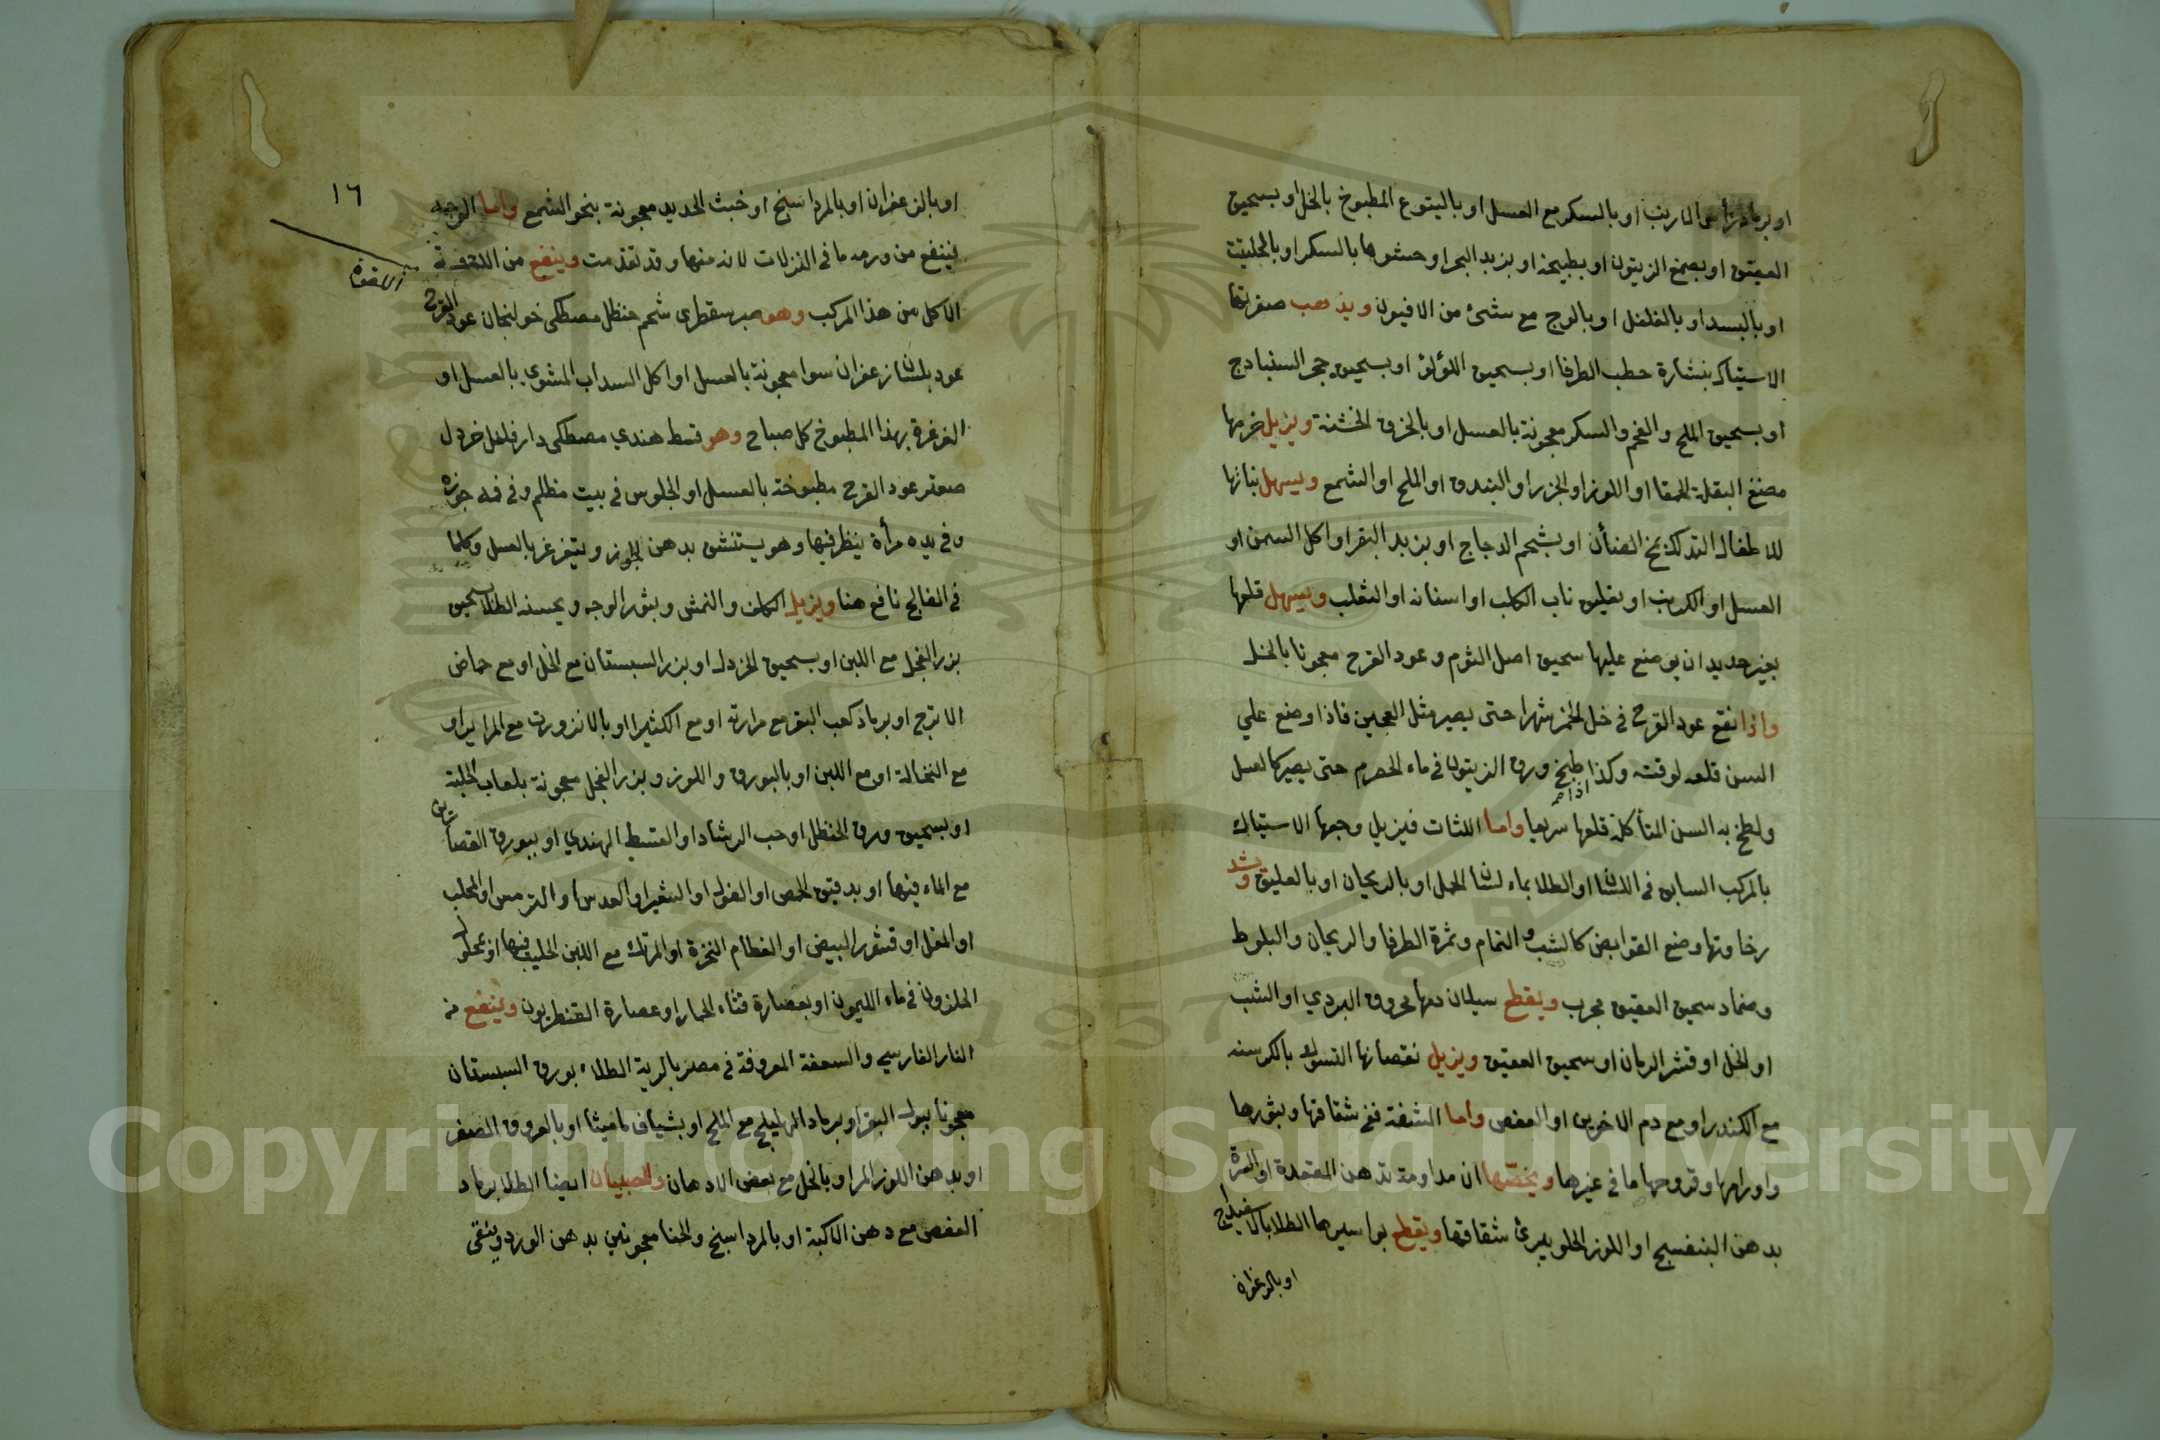 او برماد رأس الارنب او بالسكر مع العسل او باليتوع المطبوخ بالخل او بسحيق
العقيق او بصمغ الزيتون او بطبيخه او بزبد البحر او حشوها بالسكر او بالحلتيت
او بالبسد او بالفلفل او بالوج مع شئ من الافيون ويذهب صفرتها
الاستياك بنشارة حطب الطرفا او بسحيق اللؤلؤ او بسحيق حجر السنبادج
او بسحيق الملح والفحم والسكر معجونة بالعسل او بالخزف الخشنة ويزيل ضرسها
مضغ البقلة الحمقا او اللوز او الجزر او البندق او الملح او الشمع ويسهل نباتها
للاطفال التدلك بمخ الضأن او بشحم الدجاج او بزبد البقر او اكل السمن او
العسل او الكرنب او تعليق ناب الكلب او اسنانه او الثعلب ويسهل قلعها
بغير حديد ان يوضع عليها سحيق اصل التوم وعود القرح معجونا بالخل
واذا نقع عود القرح في خل الخمر شهرا حتى يصير مثل العجين فاذا وضع علي
السن قلعه لوقته وكذا اذا طبخ ورق الزيتون في ماء الحصرم حتى يصير كالعسل
ولطخ به السن المتأكلة قلعها سريعا واما اللثات فيزيل وجعها الاستياك
بالمركب السابق في اللسان او الطلا بماء لسان الحمل او بالريحان او بالعليق ويشد
رخاوتها وضع القوابض كالشب والنمام وثمرة الطرفا والريحان والبلوط
وضماد سحيق العقيق مجرب ويقطع سيلان دمها محروق البردي او الشب
او الخل او قشر الرمان او سحيق العقيق ويزيل نقصانها التسوك بالكرسنه
مع الكندر او مع دم الاخوين او العفص واما الشفة ففي شقاقها وبثورها
واورامها وقروحها ما في غيرها ويخصها ان مداومة تدهن المقعدة او السرة
بدهن البنفسج او اللوز الحلو يبرئ شقاقها ويقطع بواسيرها الطلا بالاسفيداج
او بالزعفران
١٦
او بالزعفران او بالمرداسنج او خبث الحديد معجونة بنحو الشمع واما الوجه
فينفع من ورمه ما في النزلات لانه منها وقد تقدمت وينفع من اللقوة
اللقوة
الاكل من هذا المركب وهو صبر سقطرى شحم حنظل مصطكى خولنجان عود القرح
عود بلسان زعفران سوا معجونة بالعسل او اكل السداب المشوي بالعسل او
الغرغرة بهذا المطبوخ كل صباح وهو قسط هندي مصطكى دار فلفل خردل
صعتر عود القرح مطبوخة بالعسل او الجلوس في بيت مظلم وفي فمه جوزة
وفي يده مرأة ينظر فيها وهو يستنشق بدهن الجوز ويتغرغر بالعسل وكلما
في الفالج نافع هنا ويزيل الكلف والنمش وبثور الوجه ويحسنه الطلا بسحيق
بزر الفجل مع اللبن او بسحيق الخردل او بزر السبستان مع الخل او مع حماض
الاترج او برماد كعب البقر مع مرارته او مع الكثيرا او بالانزورت مع المرا ير او
مع النخالة او مع اللبن او بالبورق واللوز وبزر الفجل معجونة بلعاب الحلبة
او بسحيق ورق الحنظل او حب الرشاد او القسط الهندي او ببورق القصارين
مع الماء فيها او بدقيق الحمص او الفول او الشعير او العدس او الترمس او المحلب
او المغل او قشور البيض او العظام النخرة او المرتك مع اللبن الحليب فيها او بمحلول
الحلزون في ماء الليمون او بعصارة قثاء الحمار او عصارة القنطريون وينفع من
النار الفارسي والسعفة المعروفة في مصر بالرية الطلاء بورق السبستان
معجونا ببول البقر او برماد الهليلج مع الملح او بشياف ماميثا او بالعروق الصفر
او بدهن اللوز المر او بالخل مع بعض الادهان وللصبيان ايضا الطلا برماد
العفص مع دهن الاكبة او بالمرداسنج والحنا معجونين بدهن الورد وينقى
Copyright © King Saud University
1957